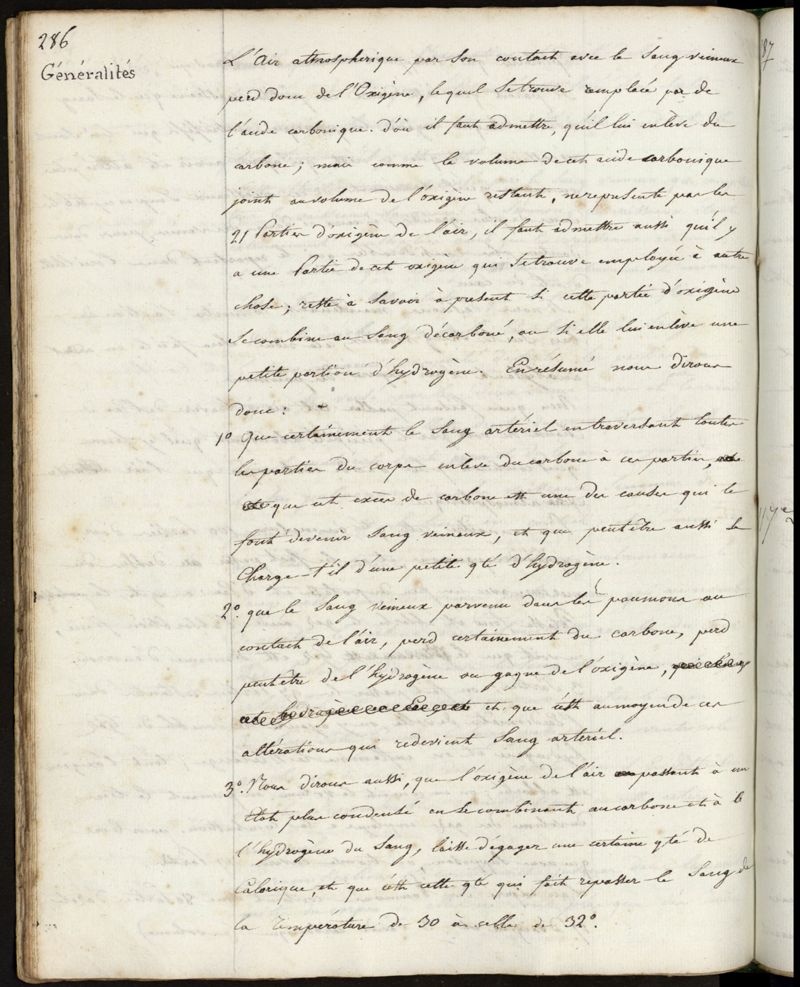 286
Généralités
L'air atmospherique par son contact avec le sang veineux
perd donc de l'Oxigène, lequel se trouve remplacé par de
l'acide carbonique. d'où il faut admettre, qu'il lui enlève du
carbone; mais comme le volume de cet acide carbonique
joint au volume de l'oxigène restant, ne represente pas les
21 Parties d'oxigène de l'air, il faut admettre aussi qu'il y
a une Partie de cet oxigène qui se trouve employée à autre
chose; reste à savoir à present si cette partie d'oxigène
se combine au sang décarboné, ou si elle lui enlève une
petite portion d'hydrogène. En résumé nous dirons
donc:
1º Que certainement le sang artériel en traversant toutes
les parties du corps enleve du carbone à ces parties,
que cet excès de carbone est une des causes qui le
font devenir sang veineux, et que peut etre aussi se
charge-t'il d'une petite qté d'hydrogène.
2º. que le sang veineux parvenu dans les poumons au
contact de l'air, perd certainement du carbone, perd
peut etre de l'hydrogène ou gagne de l'oxigène,
et que c'est au moyen de ces
altérations qui redevient sang arteriel.
3º. Nous dirons aussi, que l'oxigène de l'air passant à un
état plus condensé en se combinant au carbone et à
l'hydrogène du sang, laisse dégager une certaine qté de
calorique, et que c'est cette qté qui fait repasser le sang de
la température de 30 à celle de 32º.
87